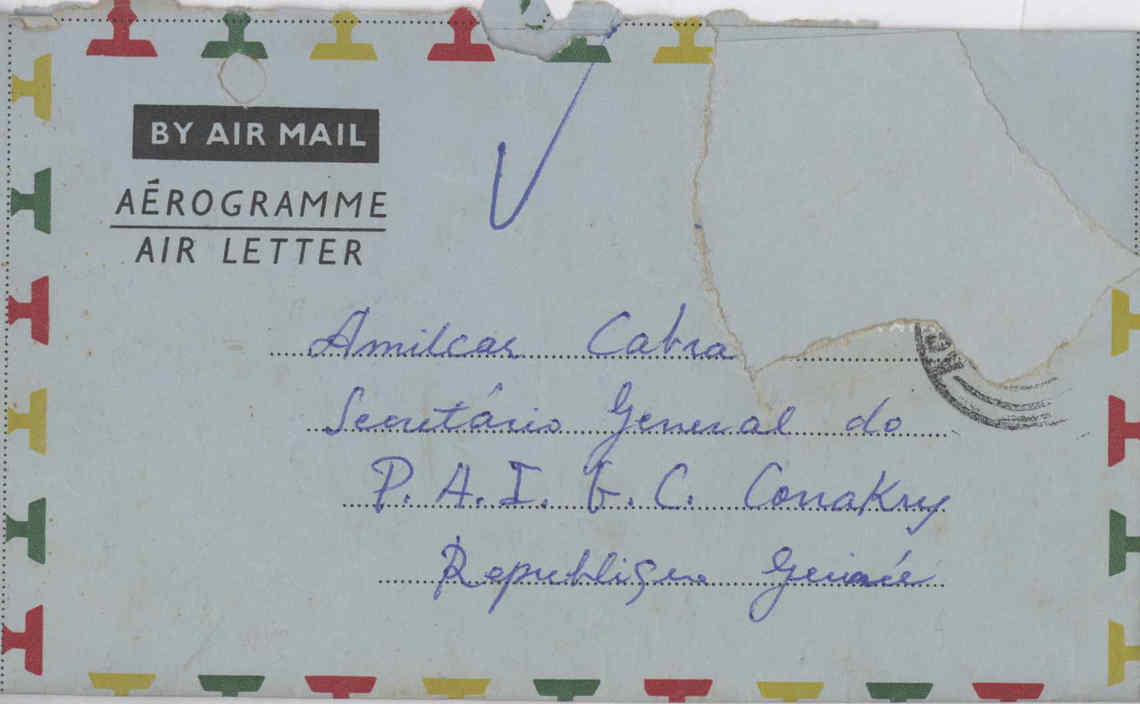 BY AIR MAIL
AÉROGRAMME
AIR LETTER
Amilcar Cabra
Secretário General do
P. A. I. G. C. Conakry
Republique Guinée